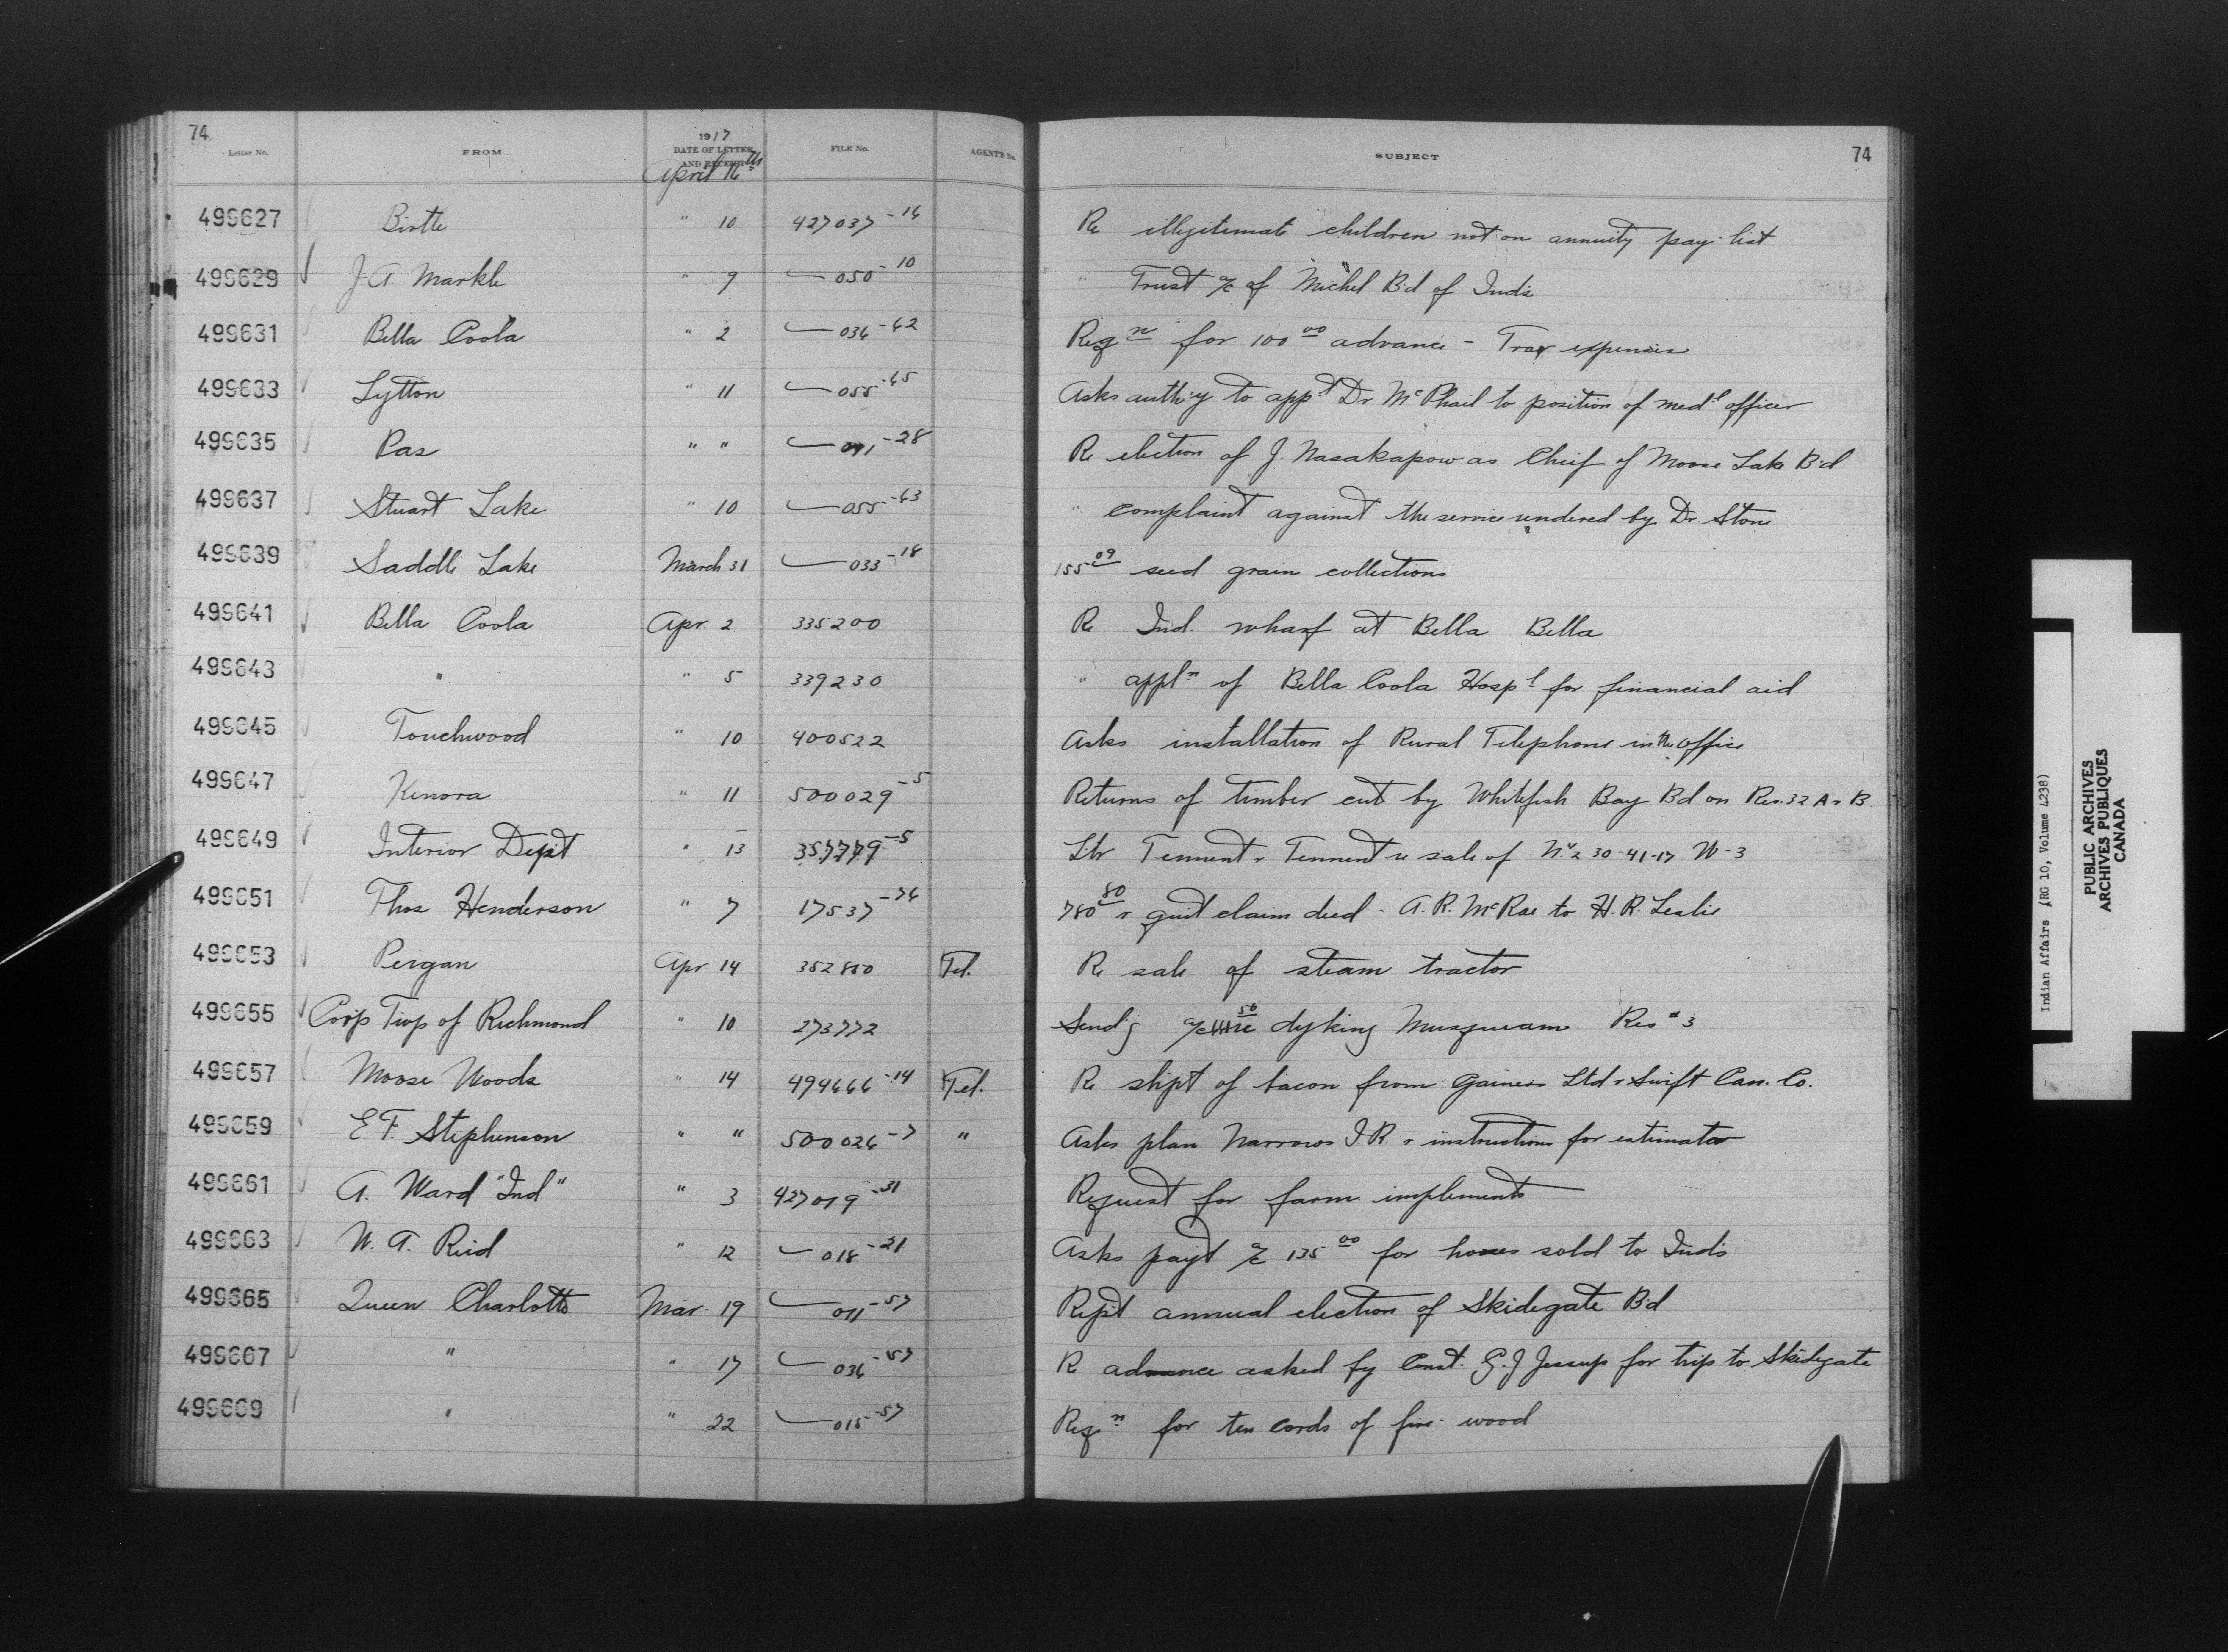 74 1917 74
Letter No. FROM DATE OF LETTER AND RECEIPT FILE No. AGENT'S No. SUBJECT
April 16th
499627 Birtle " 10 427037-14 Re illegitimate children not on annuity pay-list
499629 J A Markle " 9 050-10 " Trust a/c of Michel B'd of Inds
499631 Bella Coola " 2 036-62 Reqn for 100 00 advance - Trav expenses
499633 Lytton " 11 055-65 Asks auth'y to app't Dr McPhail to position of med'l officer
499635 Pas " " 011-28 Re election of J. Nasakapow as Chief of Moose Lake B'd
499637 Stuart Lake " 10 055-63 " complaint against the service rendered by Dr. Stone
499639 Saddle Lake March 31 033-18 155 09 seed grain collections
499641 Bella Coola Apr. 2 335200 Re Ind. wharf at Bella Bella
499643 " " 5 339230 " appl'n of Bella Coola Hosp'l for financial aid
499645 Touchwood " 10 400522 Asks installation of Rural Telephone in the office
499647 Kenora " 11 500029-5 Returns of timber cut by Whitefish Bay Bd on Res. 32 A & B
499649 Interior Dep't " 13 357779-5 Ltr Tennent & Tennent re sale of N.½ 30-41-17 W-3
499651 Thos Henderson " 7 17537-76 780 80 & quit claim deed - A. R. McRae to H. R. Leslie
499653 Peigan Apr 14 352850 Tel. Re sale of steam tractor
499655 Corp Twp of Richmond " 10 273772 Send'g a/c 50 re dyking Musqueam Res # 3
499657 Moose Woods " 14 494666-14 Tel. Re shipt of bacon from Gainers Ltd & Swift Can. Co.
499659 E. F. Stephenson " " 500026-7 " Asks plan Narrows I.R. & instructions for estimator
499661 A. Ward "Ind" " 3 427019-31 Request for farm implements
499663 W. A. Reid " 12 018-21 Asks pay't a/c 135 00 for horses sold to Inds
499665 Queen Charlotte Mar. 19 011-57 Rep't annual election of Skidegate B'd
499667 " " 17 036-57 Re advance asked by Const. G. J Jessup for trip to Skidegate
499669 " " 22 015-57 Reqn for ten cords of fire-wood
Indian Affairs (RG 10, Volume 4238)
PUBLIC ARCHIVES
ARCHIVES PUBLIQUES
CANADA